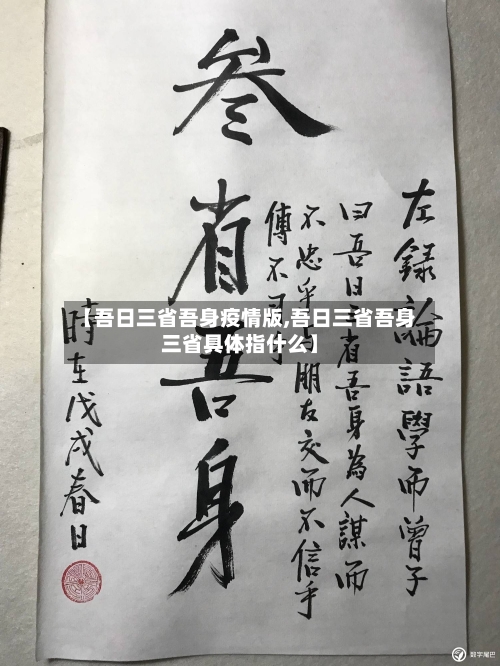 左錄論語學而曾子
曰吾日三省吾身為人謀而
不忠乎与朋友交而不信乎
傳不
叁省吾身
時在戊戌春日
【吾日三省吾身疫情版,吾日三省吾身
三省具体指什么】
数字尾巴